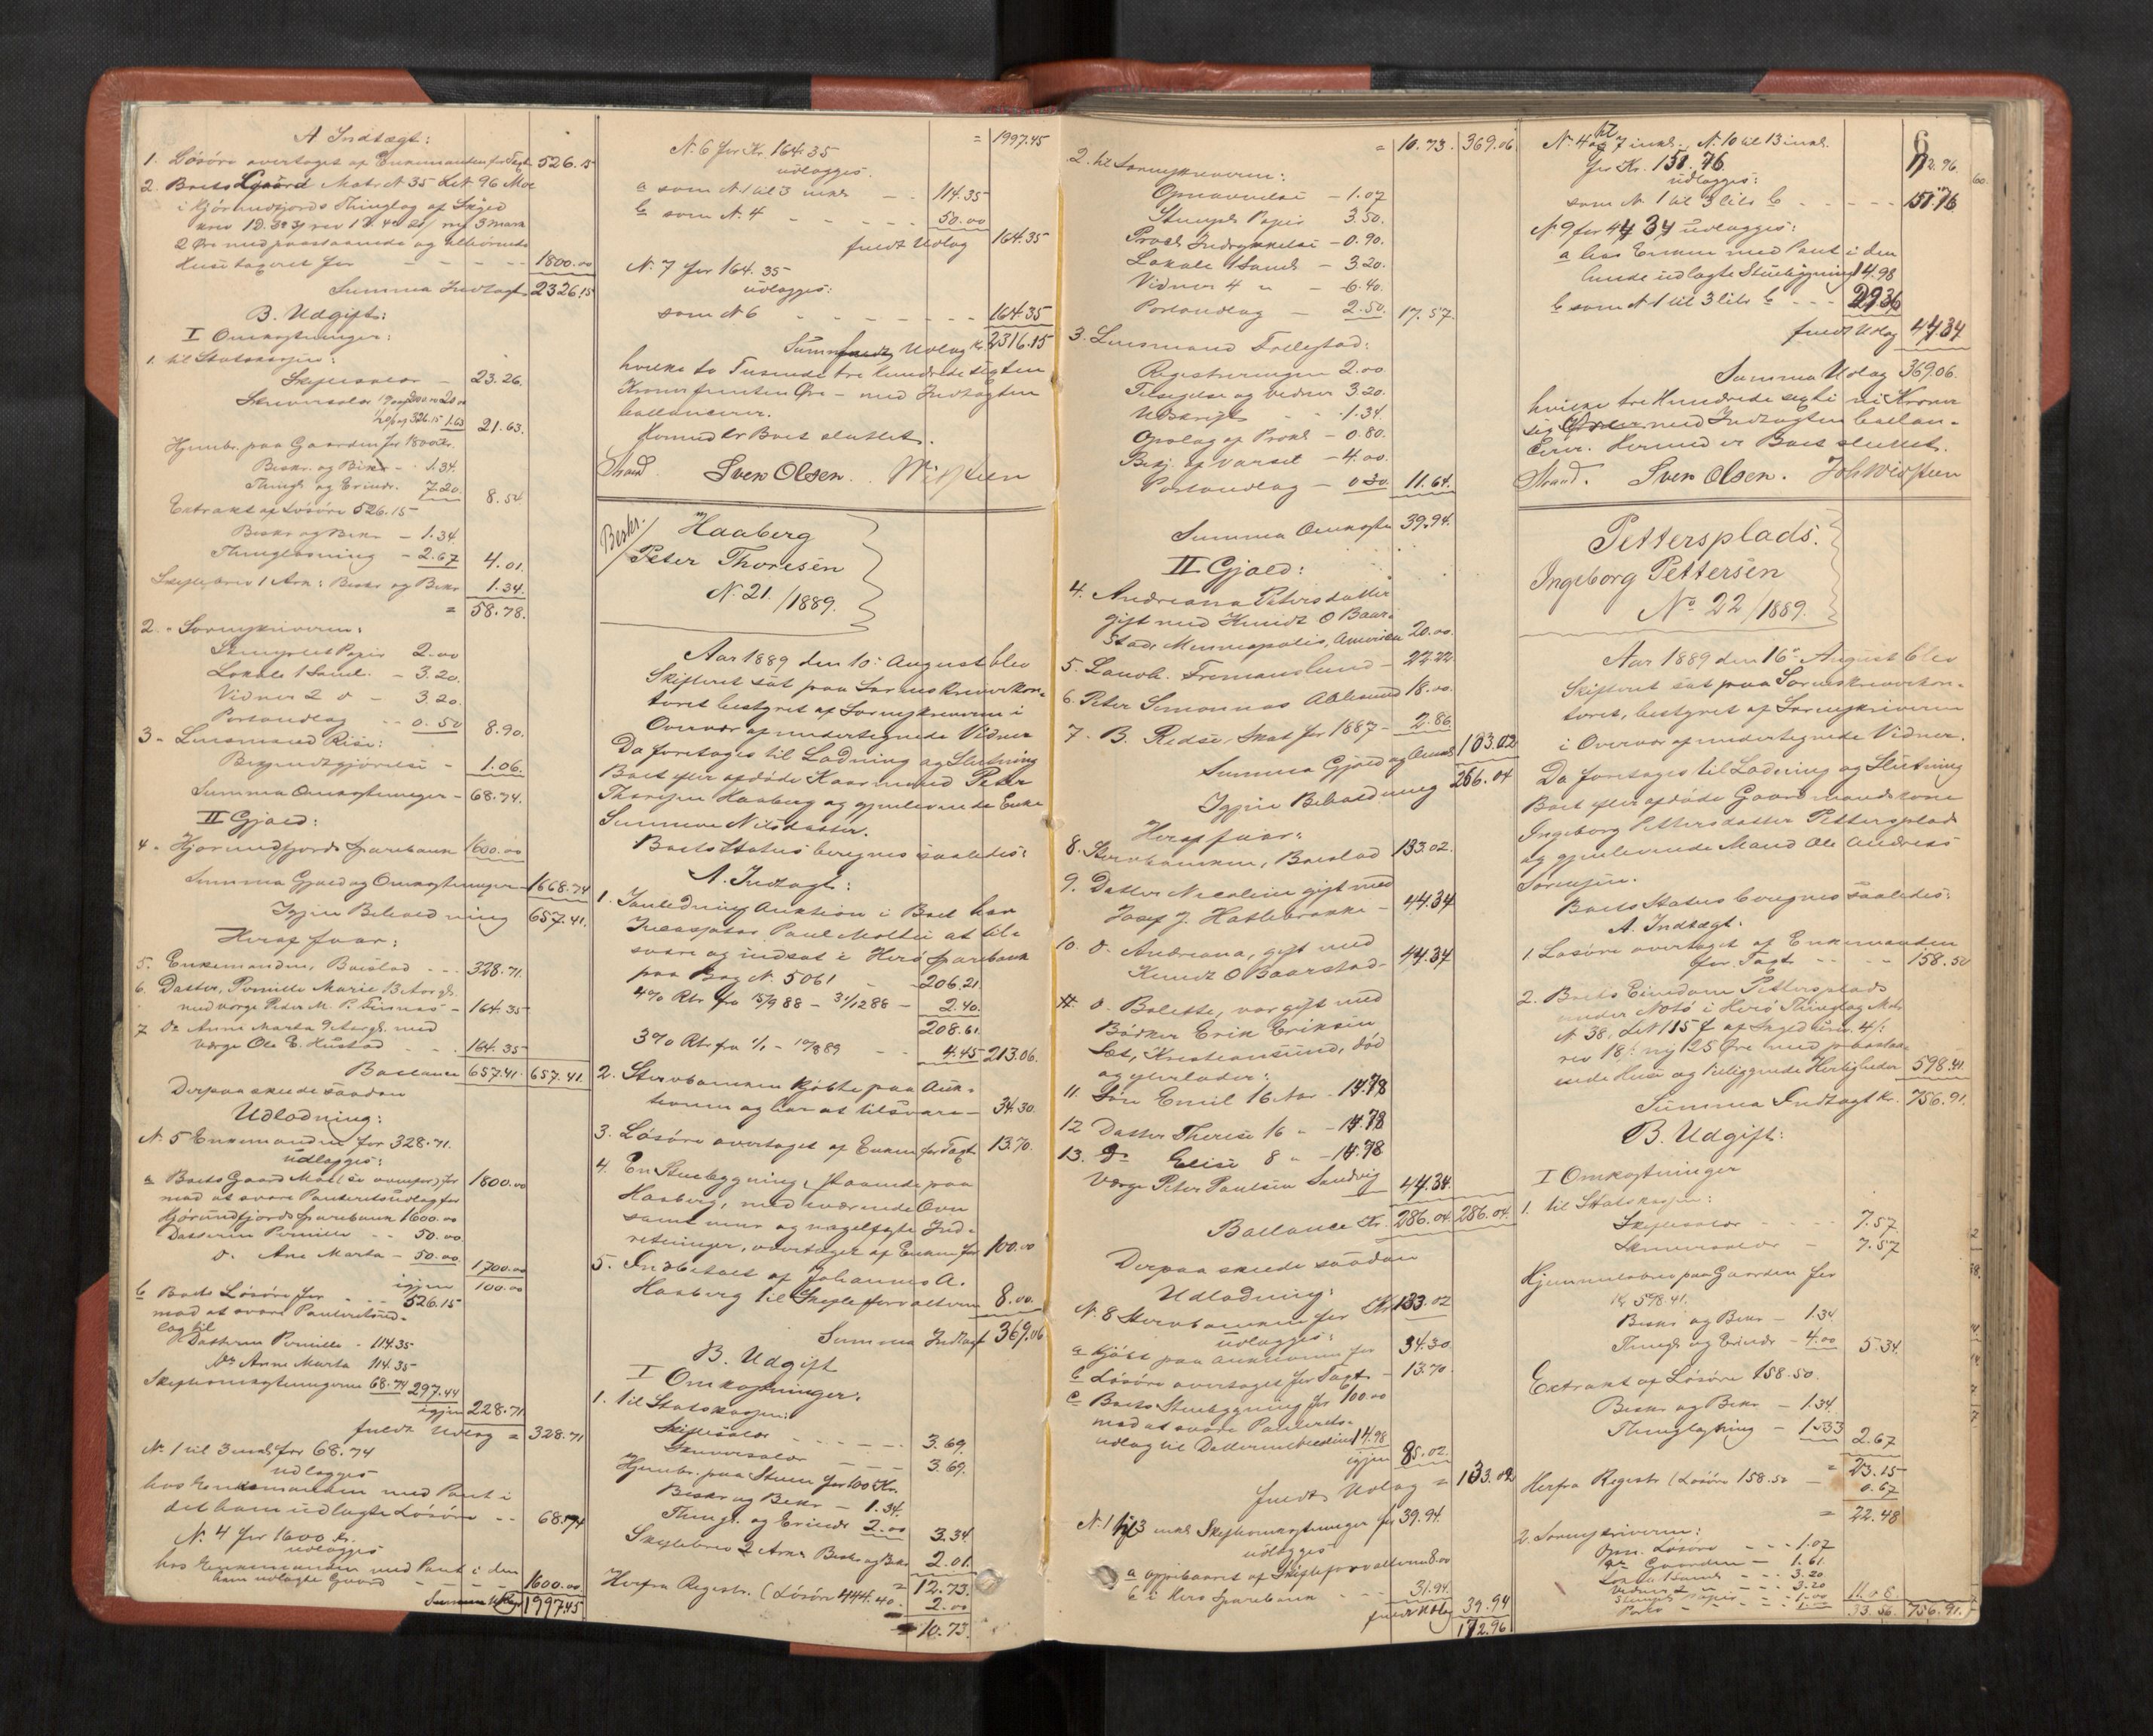 A Indtægt:
1. Løsøre overtaget af Enkemanden for Taxt 526.15
2. Boets Gaard Matr N 35 LN 96 Moe
i Hjørundfjords Thinglag af Skyld
2 Øre med paastaaende og tilhørende
Huse taxeret for - - - 1800.00
Summa Indtægt 2326.15
B. Udgift:
I Omkostninger:
1. til Statskassen:
Skiftesalær - 23.26.
Skriversalær 21.63.
Hjembr. paa Gaarden for 1800 Kr.
Beskr. og Bekr - 1.34.
Thingl og Erindr. 7.20. 8.54
Extrakt af Løsøre 526.15
Beskr og Bekr - 1.34
Thinglæsning - 2.67 4.01.
Skiftebrev 1 Ark: Beskr og Bekr 1.34.
= 58.78.
2. Sorenskriveren:
Stemplet Papir 2.00
Lokale 1 Saml. - 3.20.
Vidner 2 d - 3.20.
Portoudlæg - 0.50 8.90.
3. Lensmand Riise:
Bekjendtgjørelse - 1.06.
Summa Omkostninger - 68.74.
II Gjæld:
4. Hjørundfjords Sparebank 1600.00
Summa Gjæld og Omkostninger 1668.74
Igjen Beholdning 657.41.
Heraf faar:
5. Enkemanden, Boeslod - - - 328.71.
6. Datter, Pernille Marie 13 Aar gl.
med værge Peter M. P. Finnes - 164.35
7 Do Anne Marta 9 Aar gl. med
værge Ole E. Hustad - - 164.35
Ballance 657.41. 657.41.
Derpaa skede saadan
Udlodning:
N. 5 Enkemanden for 328.71.
udlægges:
a Boets Gaard Moe (se ovenfor) for 1800.00
mod at svare Panteretsudlæg for
Hjørundfjords Sparebank 1600.00
Datteren Pernille - - 50.00.
D. Ane Marta - 50.00 1700.00
igjen 100.00
b Boets Løsøre for - - - 526.15
mod at svare Panteretsud-
læg til
Datteren Pernille - 114.35
Do Anne Marta 114.35
Skifteomkostningerne 68.74 297.44
igjen 228.71
fuldt Udlæg = 328.71
N. 1 til 3 incl for 68.74
udlægges
hos Enkemanden med Pant i
det ham udlagte Løsøre - - 68.74
N. 4 for 1600 Kr.
udlægges
hos Enkemanden med Pant i den
ham udlagte Gaard - - - 1600.00
1997.45
= 1997.45
N. 6 for Kr. 164.35
udlægges.
a som N. 1 til 3 incl - - 114.35
b som N. 4 - - - 50.00
fuldt Udlæg 164.35
N. 7 for 164.35
udlægges:
som N 6 - - - - - 164.35
Summa Udlæg Kr. 2316.15
hvilke to Tusinde tre hundrede sexten
Kroner femten Øre - med Indtægten
ballancerer.
Hermed er Boet sluttet.
Strand. Sven Olsen.
Beskr.
Haaberg
Peter Thoresen
N. 21./1889.
Aar 1889 den 10de August blev
Skifteret sat paa Sorenskriverkon-
toret bestyret af Sorenskriveren i
Overvær af undertegnede Vidner
Da foretoges til Lodning og Slutning
Boet efter afdøde Kaarmand Peter
Thoresen Haaberg og gjenlevende Enke
Nilsdatter.
Boets Status beregnes saaledes:
A. Indtægt:
1. I anledning Auktion i Boet har
Incassator Paul Moltu at til-
svare og indsat i Herø Sparebank
paa Bog N. 5061 - 206.21
4% Rtr fra 15/9 88 - 31/12 88 - 2.40.
208.61.
3% Rtr fra 1/1 - 10/8 89 - 4.45 213.06.
2. Stervboenken kjøbte paa Auk-
tionen og har at tilsvare - 34.30.
3. Løsøre overtaget af Enken for Taxt 13.70.
4. En Stuebygning, staaende paa
Haaberg, med iværende Ovn
samt mur og nagelfaste Ind-
retninger, overtaget af Enken for 100.00
5. Indbetalt af Johannes A.
Haaberg til Skifteforvalteren 8.00.
Summa Indtægt 369.06
B. Udgift
I Omkostninger:
1. til Statskassen:
Skiftesalær - - - - - 3.69.
Skriversalær - - - 3.69.
Hjembr. paa Stuen for 100 Kr.
Beskr og Bekr - 1.34.
Thingl. og Erindr 2.00 3.34
Skiftebrev 2 Ark: Beskr og Bekr 2.01.
= 12.73.
Herfra Registr. (Løsøre 444.40. - 2.00
= 10.73.
= 10.73. 369.06.
2. til Sorenskriveren:
Opnævnelse - 1.07
Stempl. Papir 3.50.
Procl. Indrykkelse - 0.90.
Lokale 1 Saml. - 3.20.
Vidner 4 " - 6.40.
Portoudlæg - 2.50. 17.57.
3. Lensmand Frelsstad:
Registreringen 2.00
Tilsigelse og vidner 3.20.
Udskrift - - 1.34.
Opslag af Procl - 0.80.
Bekj. af varsel - 4.00.
Portoudlæg - 0.30. 11.64.
Summa Omkostn 39.94.
II Gjæld:
4. Andreana Petersdatter
gift med Knudt O Baar-
stad, Minneapolis, Amerika 20.00.
5. Landh. Fremanslund - 22.22
6. Peter Simonnæs Aalesund 18.00.
7. B. Redse, Skat for 1887 - 2.86.
Summa Gjæld og Omk 103.02
Igjen Beholdning 266.04
Heraf faar:
8. Stervboenken, Boeslod 133.02.
9. Datter Nicoline gift med
Josef J. Hatlebrække - 44.34
10. D. Andreana, gift med
Knudt O Baarstad - 44.34
D. Bolette, var gift med
Bødker Erik Eriksen
Sæt, Kristiansund, død
og efterlader:
11. Søn Emil 16 Aar - 14.78
12 Datter Therese 16 " - 14.78
13. Do Elise 8 " - 14.78
Værge Peter Paulsen Sandvig 44.34.
Ballance Kr. 286.04. 286.04.
Derpaa skede saadan
Udlodning:
N. 8 Stervboenken for Kr 133.02
udlægges:
a Kjøbt paa auktionen for 34.30
b Løsøre overtaget for Taxt - 13.70.
c Boets Stuebygning for 100.00
mod at svare Panterets-
udlæg til 14.98
igjen 85.02.
fuldt Udlæg = 133.02
N. 1 til 3 incl Skifteomkostninger for 39.94.
udlægges
a oppebaaret af Skifteforvalteren 8.00
b i Herø Sparebank - - 31.94.
fuldt Udlæg 39.94
172.96
6
N. 4 til 7 inkl., N. 10 til 13 inkl. 172.96
for Kr. 151.76
udlægges:
som N 1 til 3 lit b - - - - 151.76.
N. 9 for 44 34 udlægges:
a hos Enken med Pant i den
hende udlagte Stuebygning 14.98
b som N 1 til 3 lit b - - - 29.36
fuldt Udlæg 44 34
Summa Udlæg 369.06.
hvilke tre Hundrede sexti ni Kroner
sex Øre med Indtægten ballan-
cerer. Hermed er Boet sluttet.
Strand. Sven Olsen.
Pettersplads.
Ingeborg Pettersen
No 22/1889.
Aar 1889 den 16de August blev
Skifteret sat paa Sorenskriverkon-
toret, bestyret af Sorenskriveren
i Overvær af undertegnede Vidner.
Da foretoges til Lodning og Slutning
Boet efter afdøde Gaardmandskone
Ingeborg Pettersdatter Pettersplads
og gjenlevende Mand Ole Andreas
Sørensen.
Boets Status beregnes saaledes:
A. Indtægt.
1 Løsøre overtaget af Enkemanden
for Taxt - - - - 158.50
2. Boets Eiendom Pettersplads
under Notø i Herø Thinglag Matr
N 38. LN 115 f af Skyld urev. 4/:
rev 18/: ny 25 Øre med paastaa-
ende Huse og tilliggende Herligheder 598.41.
Summa Indtægt Kr. 756.91.
B. Udgift:
I Omkostninger
1. til Statskassen:
Skiftesalær - - - - 7.57.
Skriversalær - 7.57
Hjemmelsbrev paa Gaarden for
Kr 598.41.
Beskr og Bekr - 1.34
Thingl og Erindr - 4.00 5.34.
Extrakt af Løsøre 158.50.
Beskr og Bekr - 1.34.
Thinglæsning - 1.33 2.67
= 23.15
Herfra Registr (Løsøre 158.50 - 0.67
= 22.48
2. Sorenskriveren:
Opn. Løsøre - - - 1.07
Do Gaarden - 1.61.
Lokale 1 Saml - - - 3.20
Vidner 2 " - - - 3.20
Stempl Papir - - - 1.00
Porto - - - 1.00 11.08
33.56. 756.91.